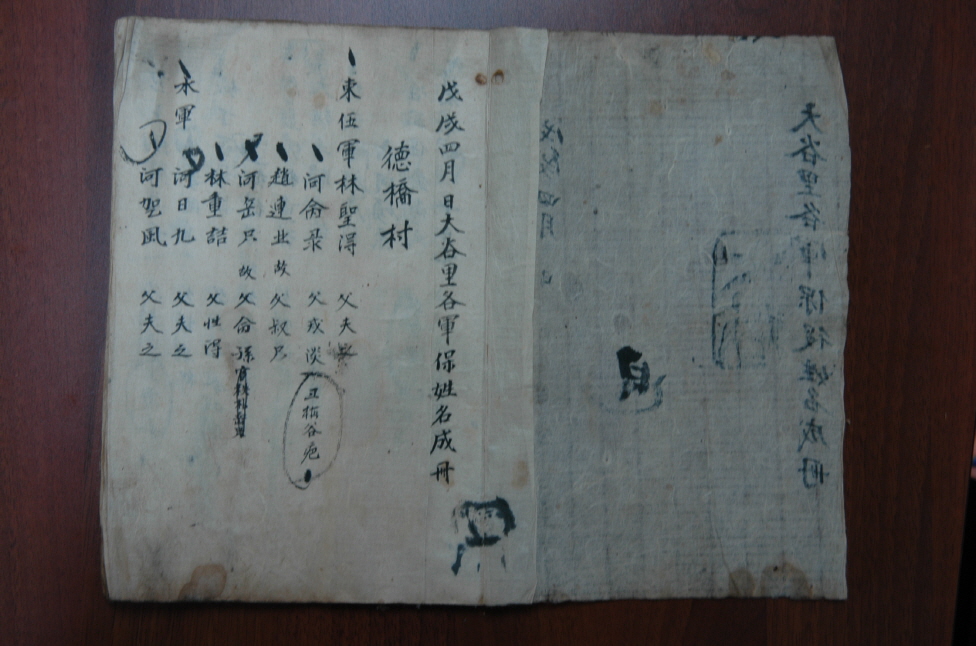 戊戌四月日大谷里各軍保姓名成冊
德橋村
束伍軍林聖淂 父夫
河命彔 父戎淡 丑橋谷
趙連北 故 父叔只
河岳只 故 父命孫
林重喆 父性淂
禾軍 河日九 父夫之
河 父夫之
大谷里各軍保役姓名成冊
戊戌四月日